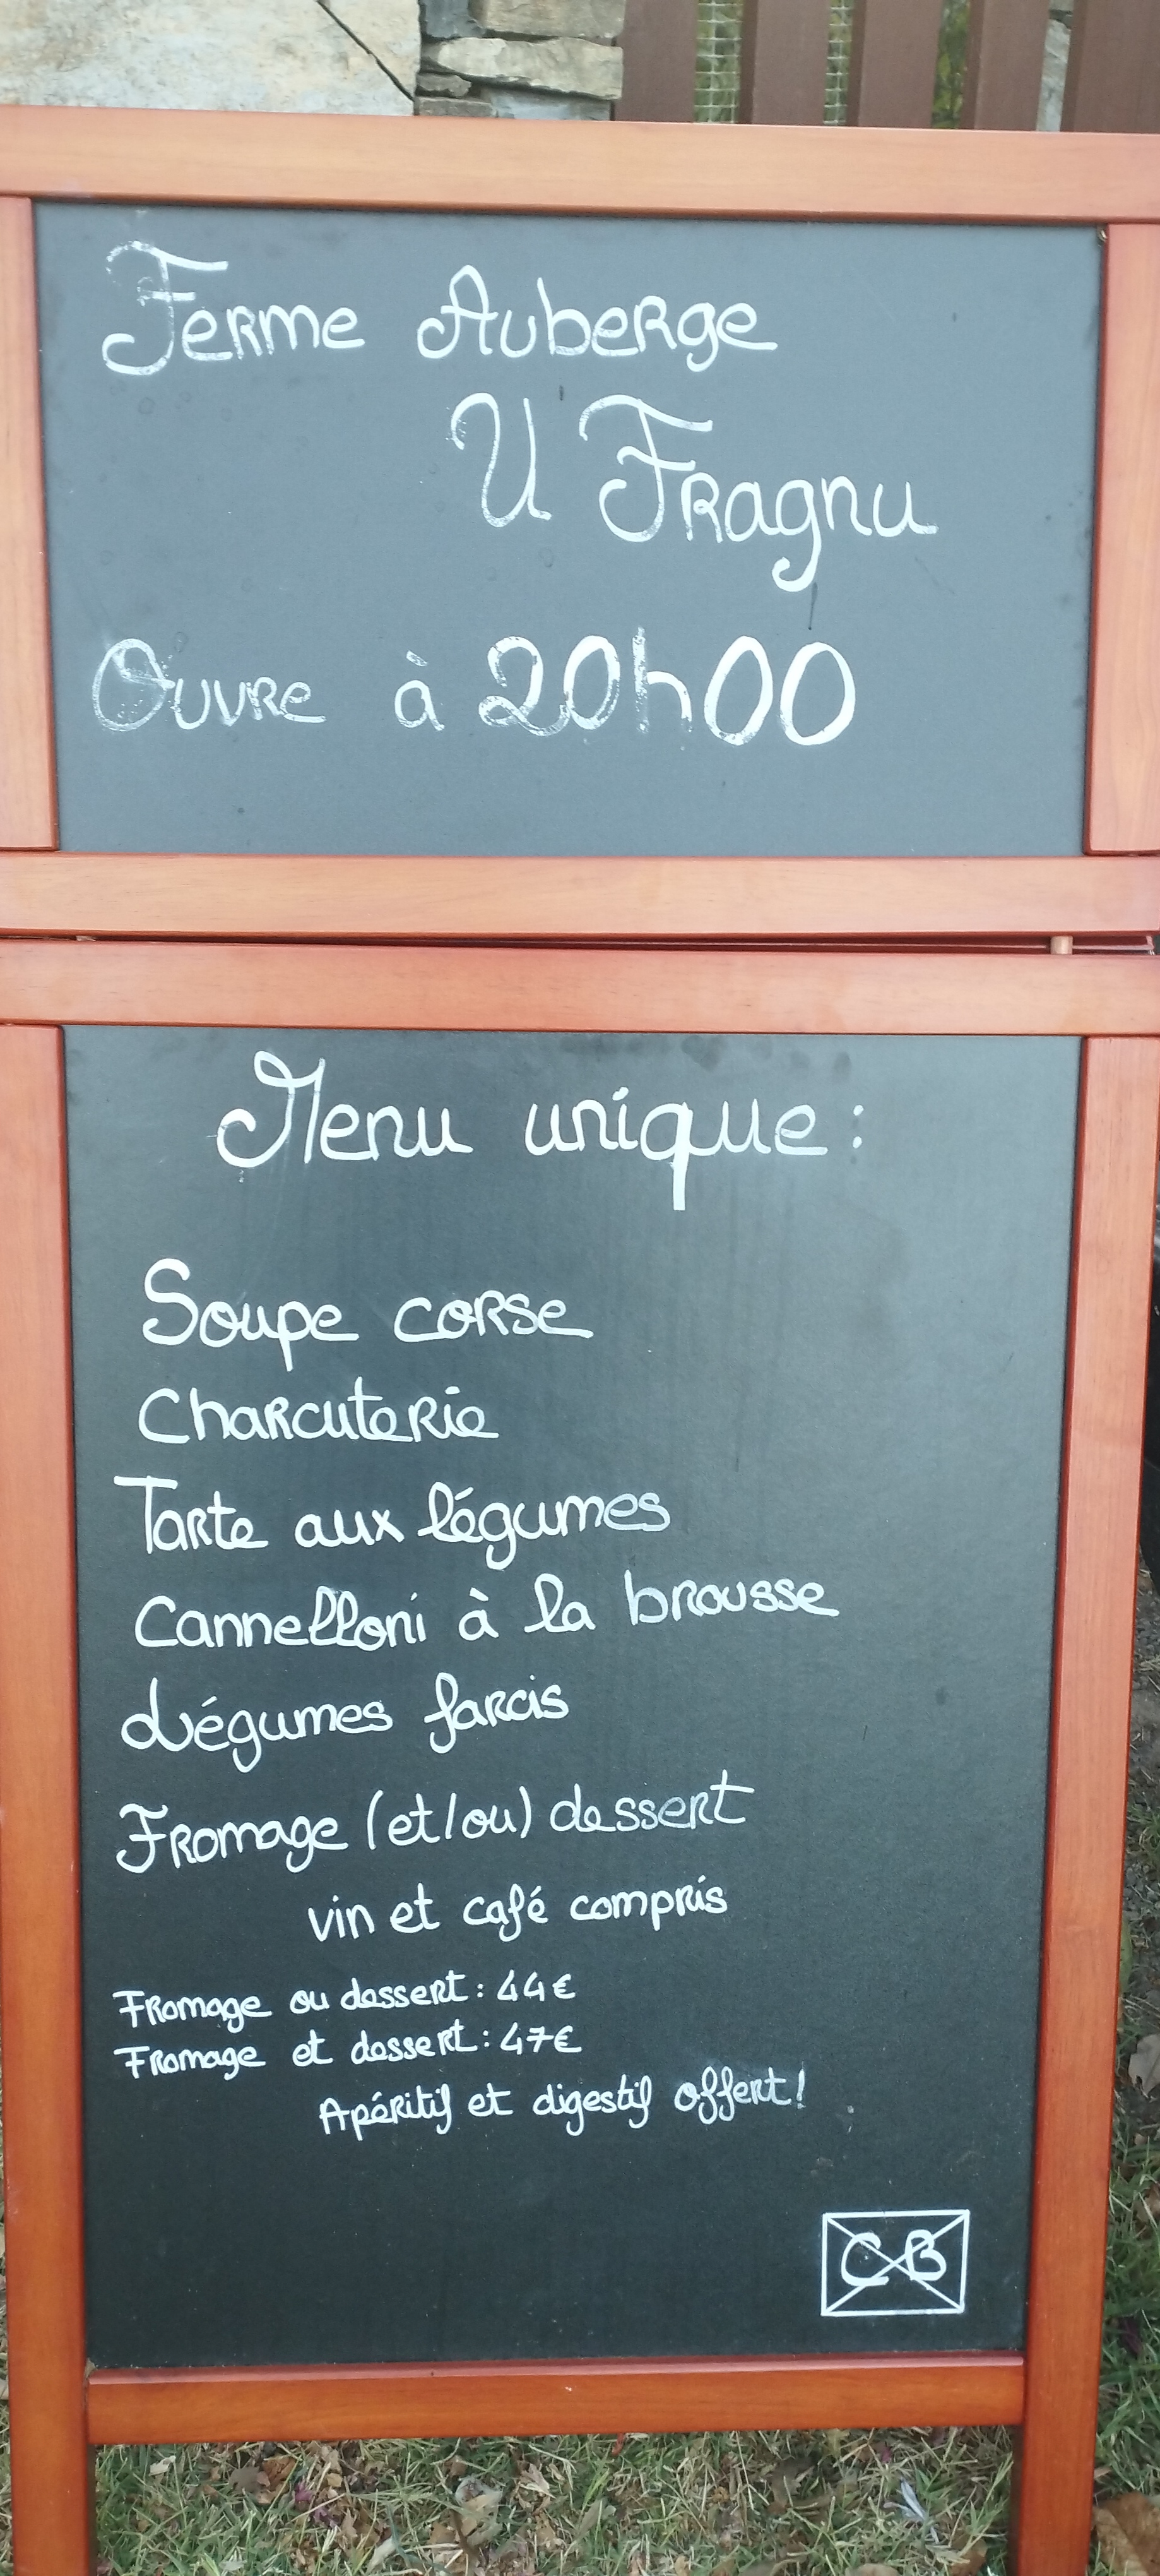 Ferme Auberge
U Fragnu
Ouvre à 20h00
Menu unique :
Soupe corse
Charcuterie
Tarte aux légumes
Cannelloni à la brousse
Légumes farcis
Fromage (et/ou) dessert
vin et café compris
Fromage ou dessert : 44€
Fromage et dessert : 47€
Apéritif et digestif offert !
CB